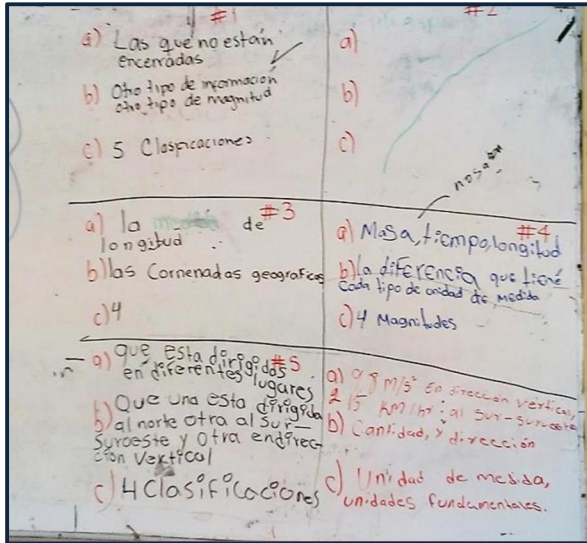 #1
a) Las que no están
encerradas
b) Otro tipo de información
otro tipo de magnitud
c) 5 Clasificaciones
#2
a)
b)
c)
#3
a) la de
longitud
b) las Cornenadas geograficas
c) 4
#4
a) Masa, tiempo, longitud
b) la diferencia que tiene
Cada tipo de unidad de medida
c) 4 Magnitudes
#5
a) que esta dirigidas
en diferentes lugares
b) Que una esta dirigida
al norte otra al Sur-
Suroeste y otra en direc-
cion Vertical
c) 4 Clasificaciones
a) 9.8 m/s² En dirección vertical,
215 KM/hr: al sur-suroeste
b) Cantidad, y dirección
c) Unidad de medida,
unidades fundamentales.